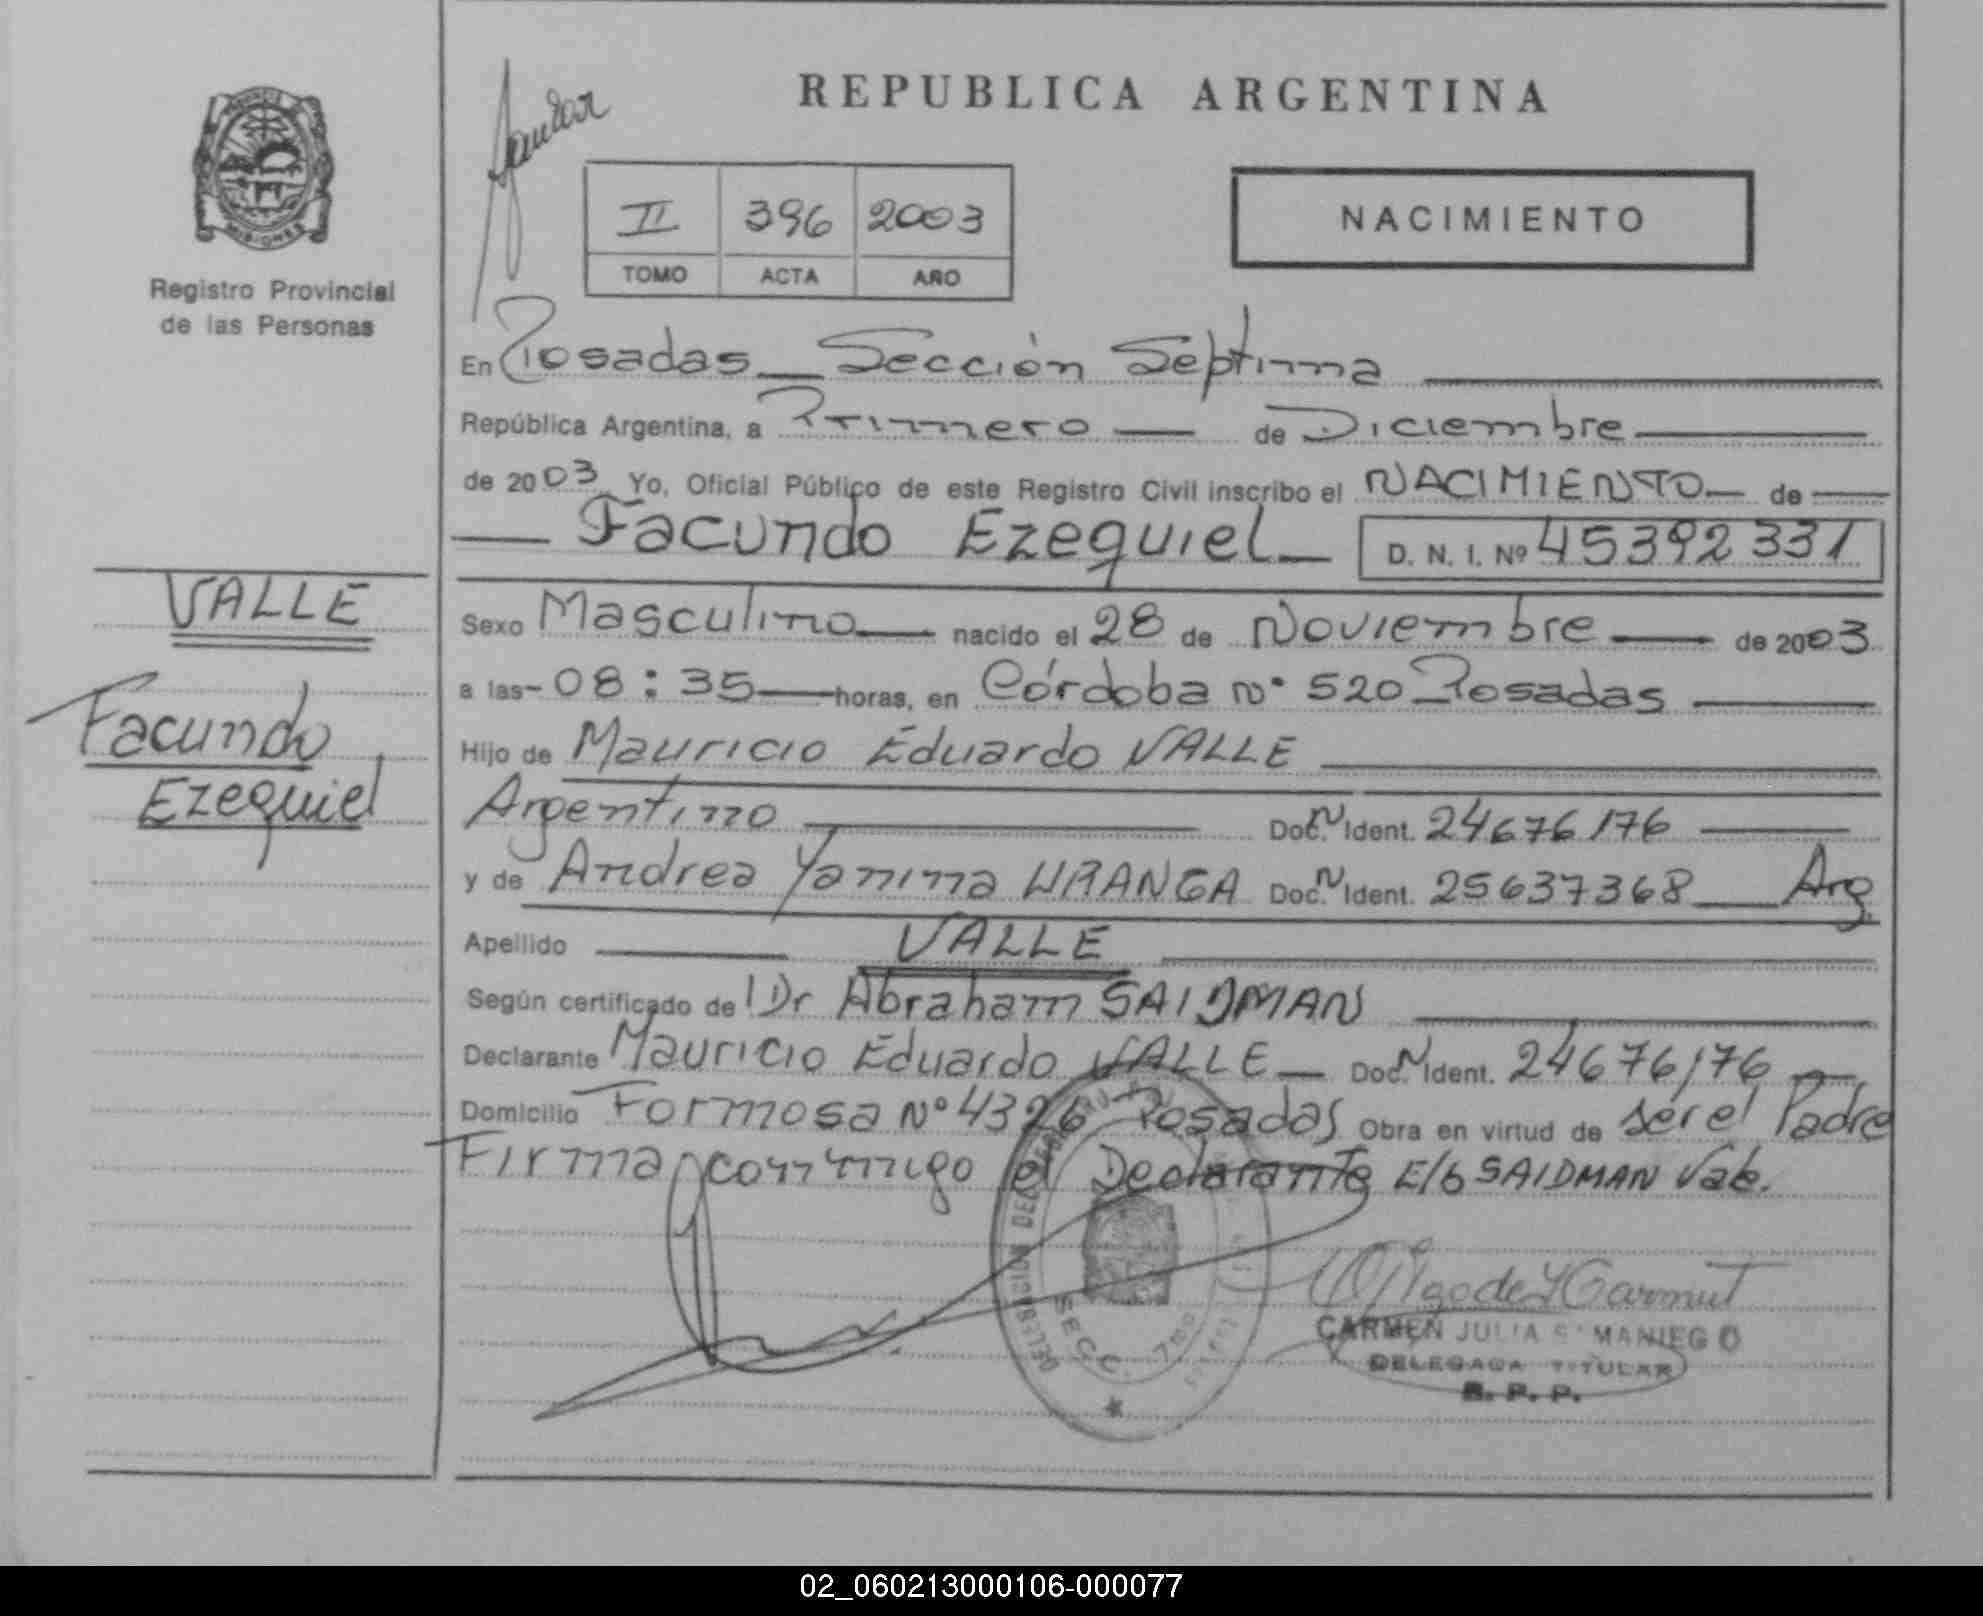 REPUBLICA ARGENTINA
MISIONES
Registro Provincial
de las Personas
II 396 2003
TOMO ACTA AÑO
NACIMIENTO
En Posadas Sección Septima
República Argentina, a Primero de Diciembre
de 2003 Yo, Oficial Público de este Registro Civil inscribo el NACIMIENTO de
Facundo Ezequiel D. N. I. Nº 45392331
VALLE
Facundo
Ezequiel
Sexo Masculino nacido el 28 de Noviembre de 2003
a las 08:35 horas, en Córdoba Nº 520 Posadas
Hijo de Mauricio Eduardo VALLE
Argentino Doc. N Ident. 24676176
y de Andrea Yanina URANGA Doc. N Ident. 25637368 Arg.
Apellido VALLE
Según certificado de Dr Abraham SAIDMAN
Declarante Mauricio Eduardo VALLE Doc. N Ident. 24676176
Domicilio Formosa Nº 4326 Posadas Obra en virtud de ser el Padre
Firma conmigo el Declarante E/b SAIDMAN Vale.
SECC. 7ma
CARMEN JULIA SAMANIEGO
DELEGADA TITULAR
R. P. P.
02_060213000106-000077